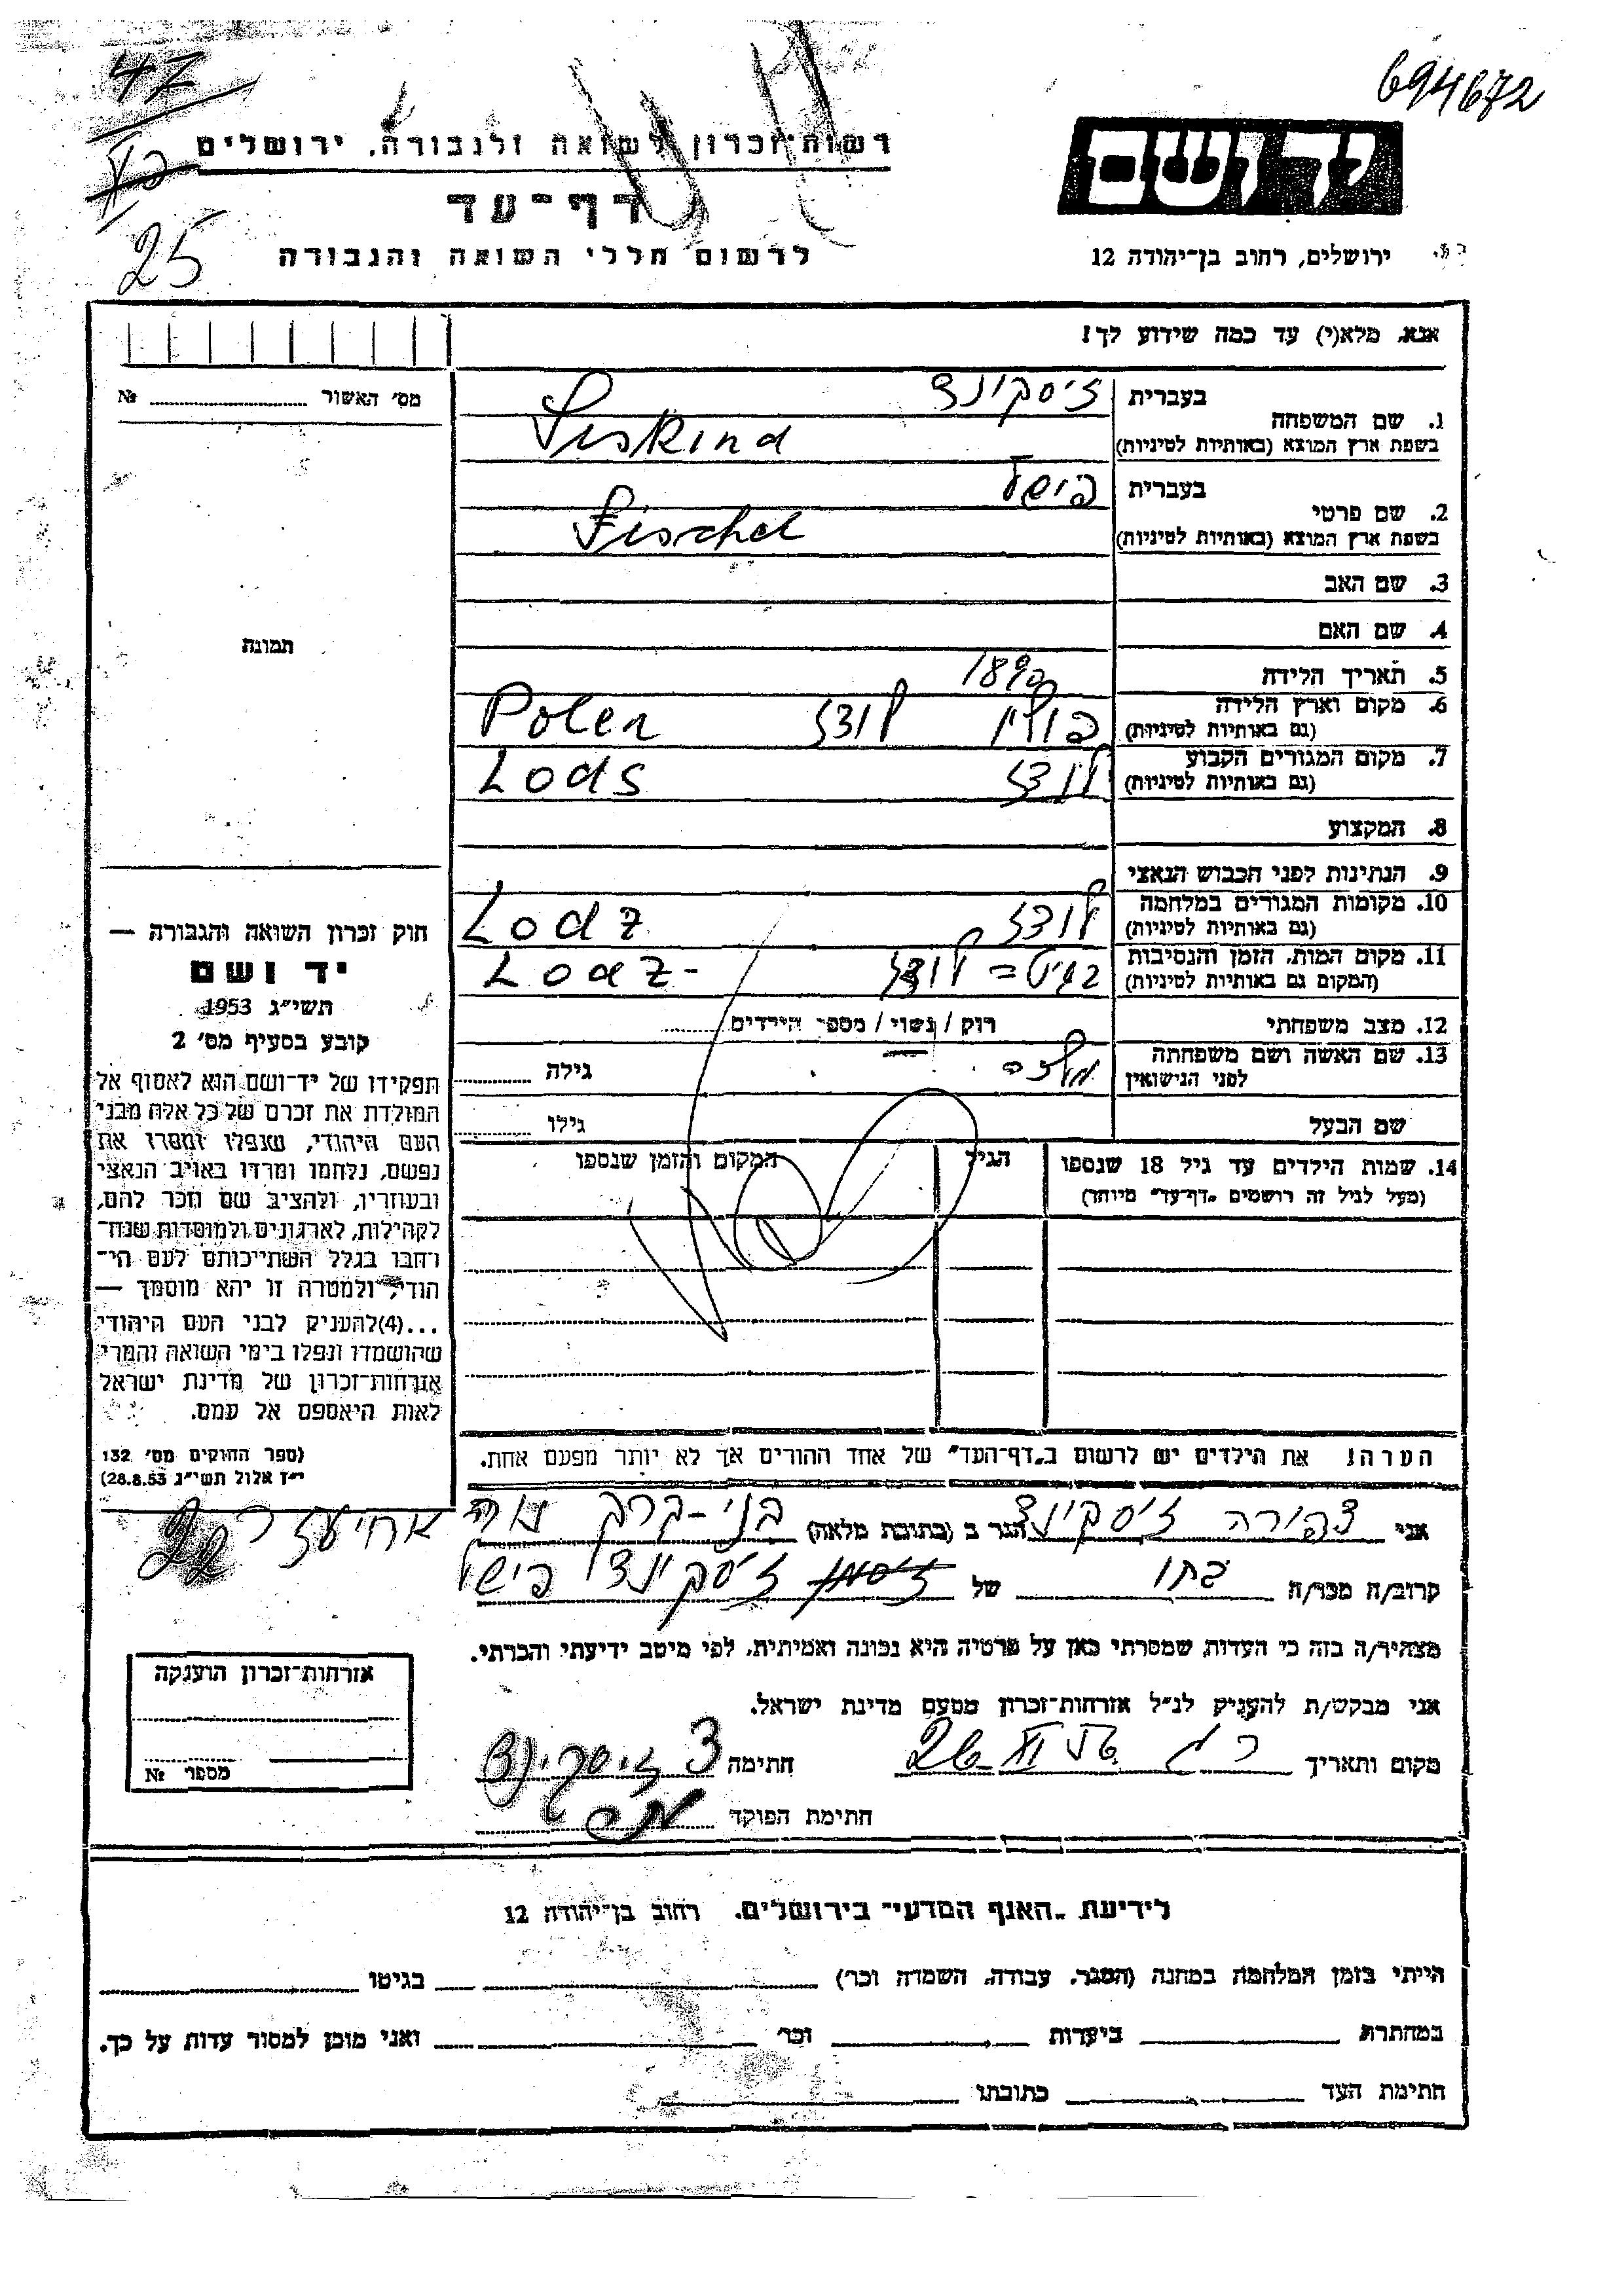 694672
47
25
יד ושם
רשות־זכרון לשואה ולגבורה, ירושלים
דף־עד
לרשום חללי השואה והגבורה
ירושלים, רחוב בן־יהודה 12
אנא, מלא(י) עד כמה שידוע לך!
מס׳ האשור № 
תמונה
1. שם המשפחה
בעברית זיסקונד
בשפת ארץ המוצא (באותיות לטיניות) Siskind
2. שם פרטי
בעברית פישל
בשפת ארץ המוצא (באותיות לטיניות) Fischel
3. שם האב
4. שם האם
5. תאריך הלידה 1890
6. מקום וארץ הלידה (גם באותיות לטיניות) פולין לודז Polen
7. מקום המגורים הקבוע (גם באותיות לטיניות) לודז Lods
8. המקצוע
9. הנתינות לפני הכבוש הנאצי
10. מקומות המגורים במלחמה (גם באותיות לטיניות) לודז Lodz
11. מקום המות, הזמן והנסיבות (המקום גם באותיות לטיניות) לודז Lodz-
12. מצב משפחתי רוק / נשוי / מספר הילדים
13. שם האשה ושם משפחתה לפני הנישואין גילה
שם הבעל גילו
14. שמות הילדים עד גיל 18 שנספו (מעל לגיל זה רושמים „דף־עד״ מיוחד) הגיל המקום והזמן שנספו
הערה! את הילדים יש לרשום ב„דף־העד״ של אחד ההורים אך לא יותר מפעם אחת.
חוק זכרון השואה והגבורה —
יד ושם
תשי״ג 1953
קובע בסעיף מס׳ 2
תפקידו של יד־ושם הוא לאסוף אל
המולדת את זכרם של כל אלה מבני
העם היהודי, שנפלו ומסרו את
נפשם, נלחמו ומרדו באויב הנאצי
ובעוזריו, ולהציב שם וזכר להם,
לקהילות, לארגונים ולמוסדות שנח־
רחבו בגלל השתייכותם לעם הי־
הודי, ולמטרה זו יהא מוסמך —
...(4)להעניק לבני העם היהודי
שהושמדו ונפלו בימי השואה והמרי
אזרחות־זכרון של מדינת ישראל
לאות היאספם אל עמם.
(ספר החוקים מס׳ 132
י״ז אלול תשי״ג 28.8.53)
אני צפורה זיסקינד הגר ב (כתובת מלאה) בני-ברק נוה אחיעזר 22
קרוב/ה מכר/ה בתו של זיסקינד פישל
מצהיר/ה בזה כי העדות שמסרתי כאן על פרטיה היא נכונה ואמיתית, לפי מיטב ידיעתי והכרתי.
אני מבקש/ת להעניק לנ״ל אזרחות־זכרון מטעם מדינת ישראל.
מקום ותאריך חתימה צ זיסקינד
חתימת הפוקד
אזרחות־זכרון הוענקה
מספר №
לידיעת „האגף המדעי״ בירושלים, רחוב בן־יהודה 12
הייתי בזמן המלחמה במחנה (הסגר, עבודה, השמדה וכר׳) בגיטו
במחתרת ביערות וכר׳ ואני מוכן למסור עדות על כך.
חתימת העד כתובתו